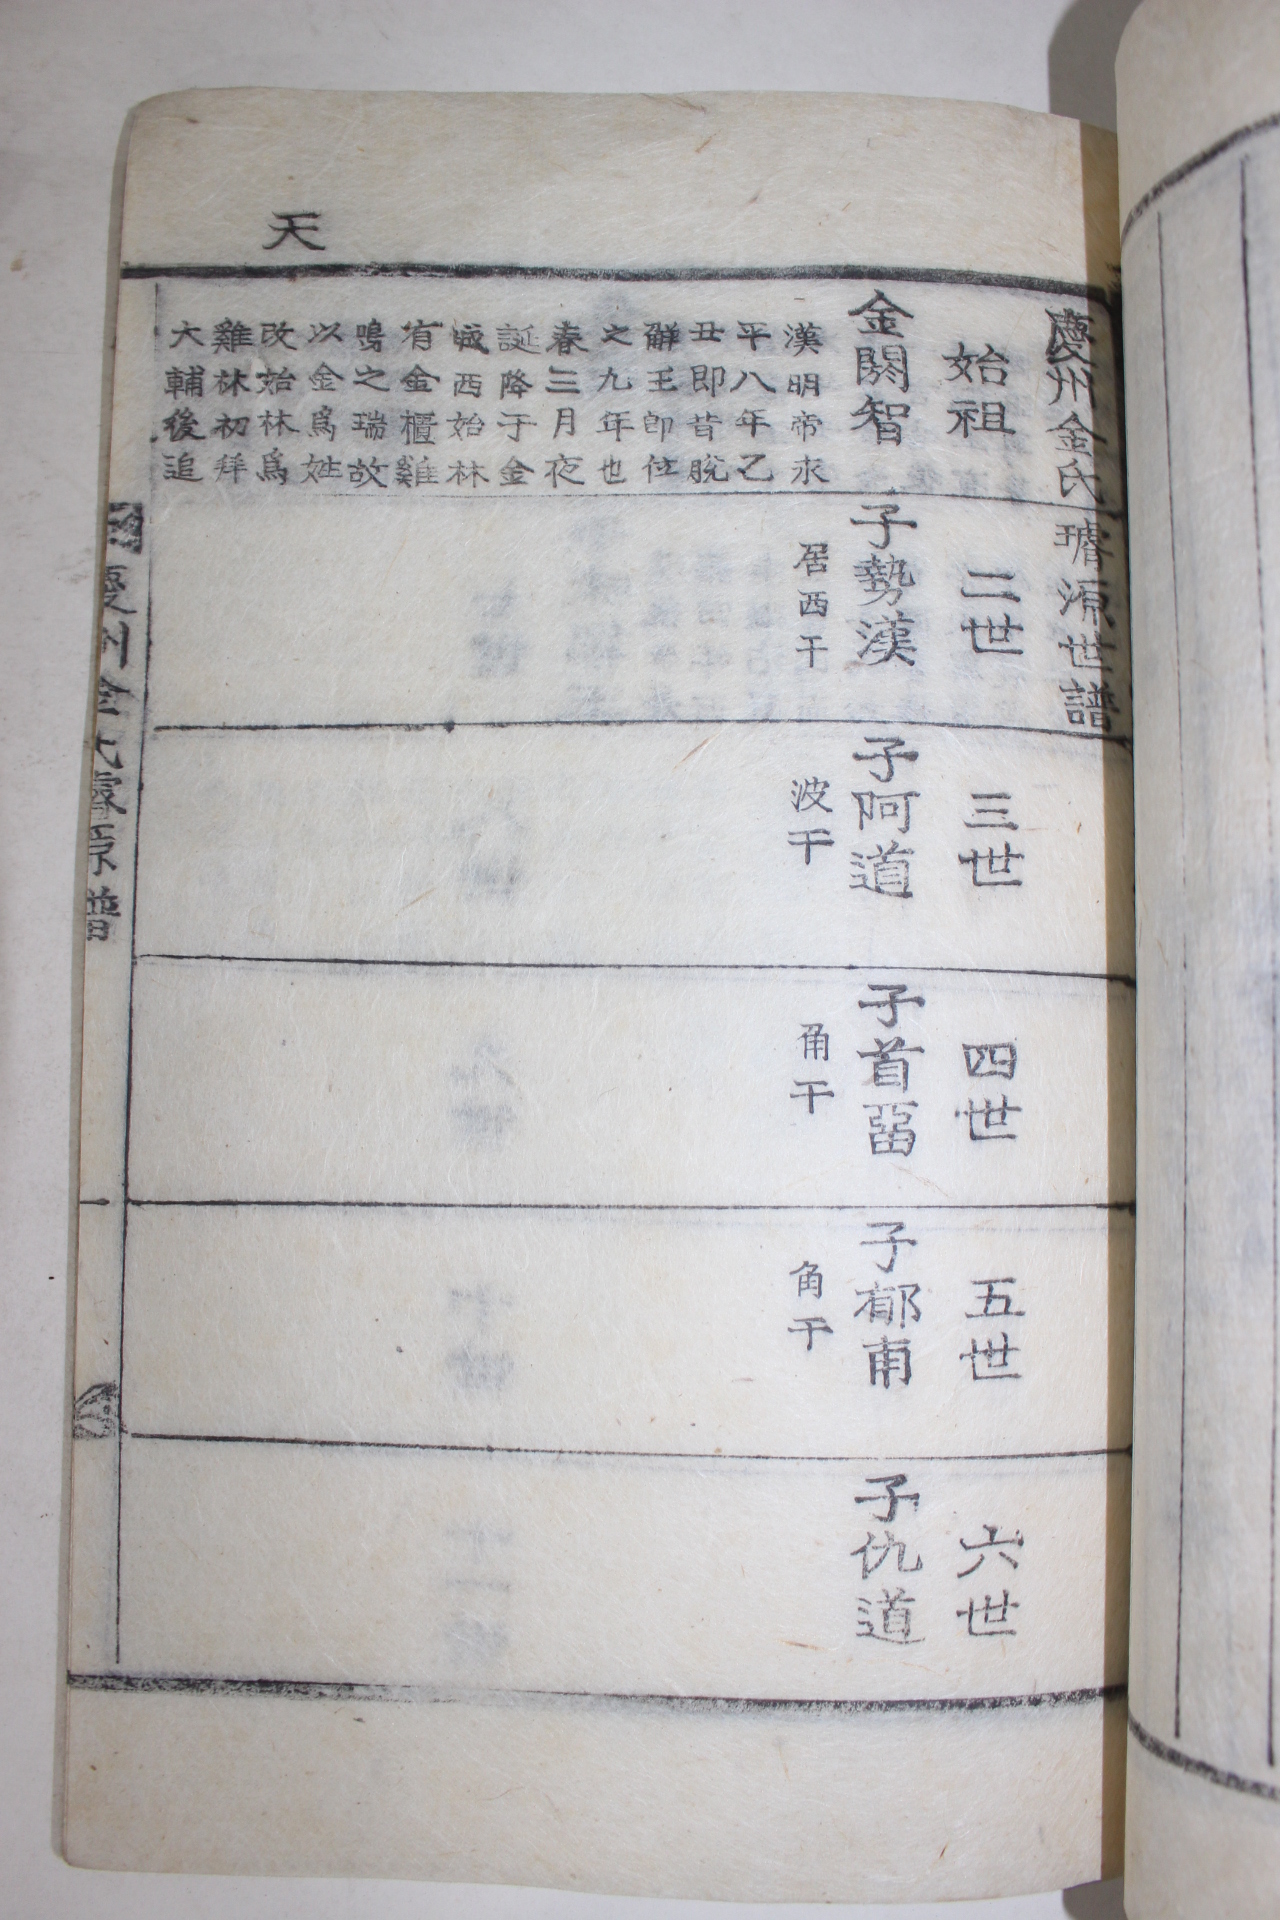 天
慶州金氏璿源世譜
始祖
金閼智
漢明帝永
平八年乙
丑即昔脫
解王即位
之九年也
春三月夜
誕降于金
城西始林
有金櫃雞
鳴之瑞故
以金爲姓
改始林爲
雞林初拜
大輔後追
二世
子勢漢
居西干
三世
子阿道
波干
四世
子首留
角干
五世
子郁甫
角干
六世
子仇道
慶州金氏璿源譜
一